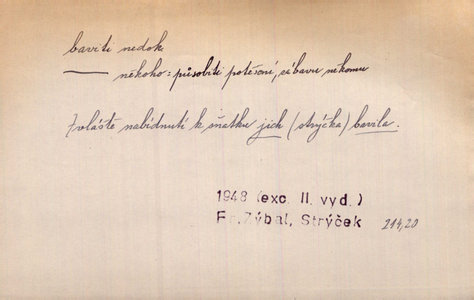 baviti nedok
— někoho = působiti potěšení, zábavu někomu
Zvláště nabídnutí k sňatku jich (strýčka) bavila.
1948 (exc. II. vyd.)
Fr. Zýbal, Strýček 214,20